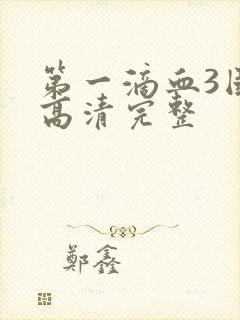 第一滴血3
高清完整
鄭鑫